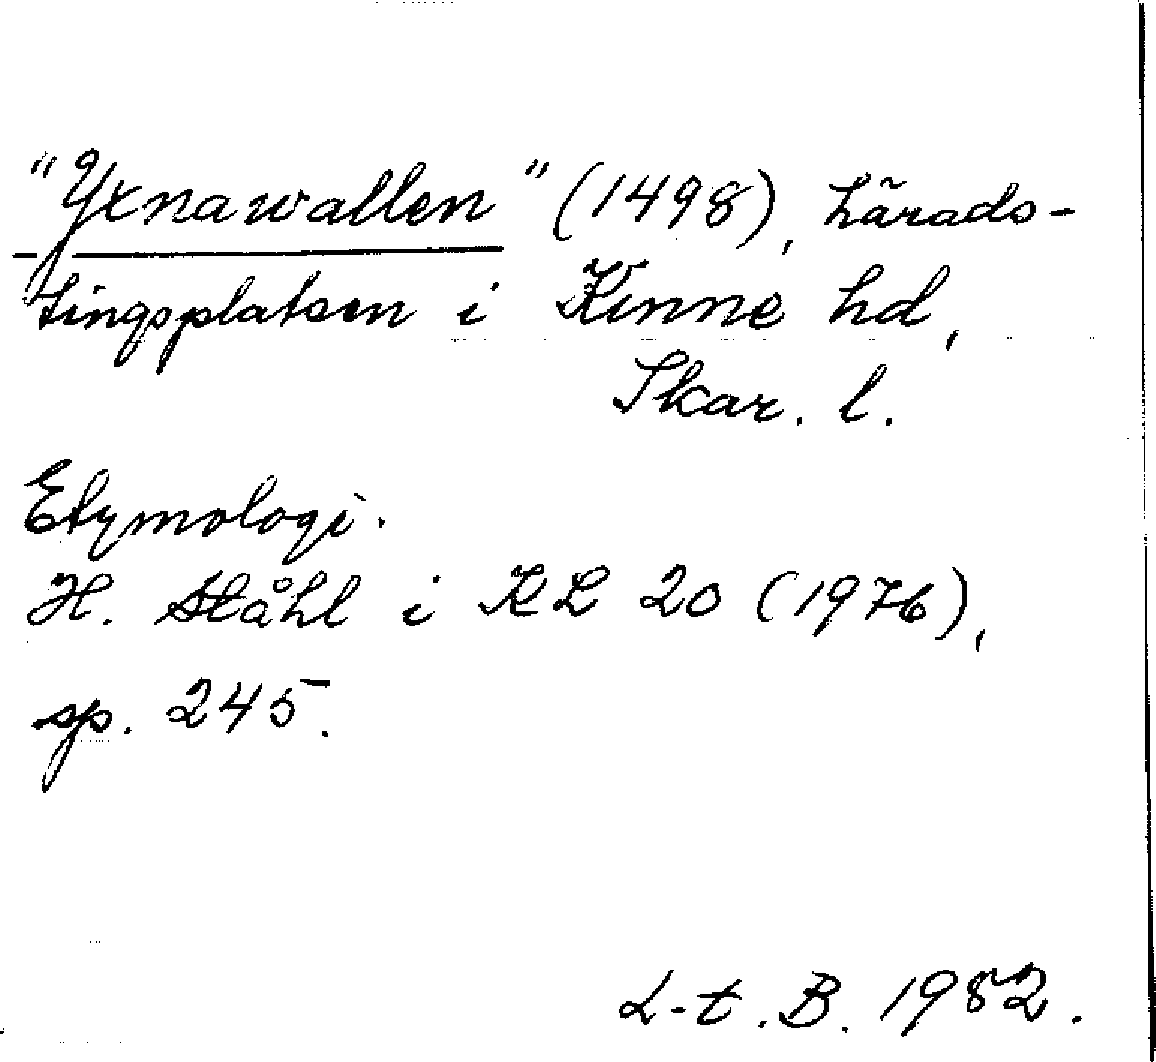 "Yxnawallen" (1498), härads-
tingsplatsen i Kinne hd,
Skar. l.
Etymologi.
H. Ståhl i KL 20 (1976),
sp. 245.
L-t. B. 1982.